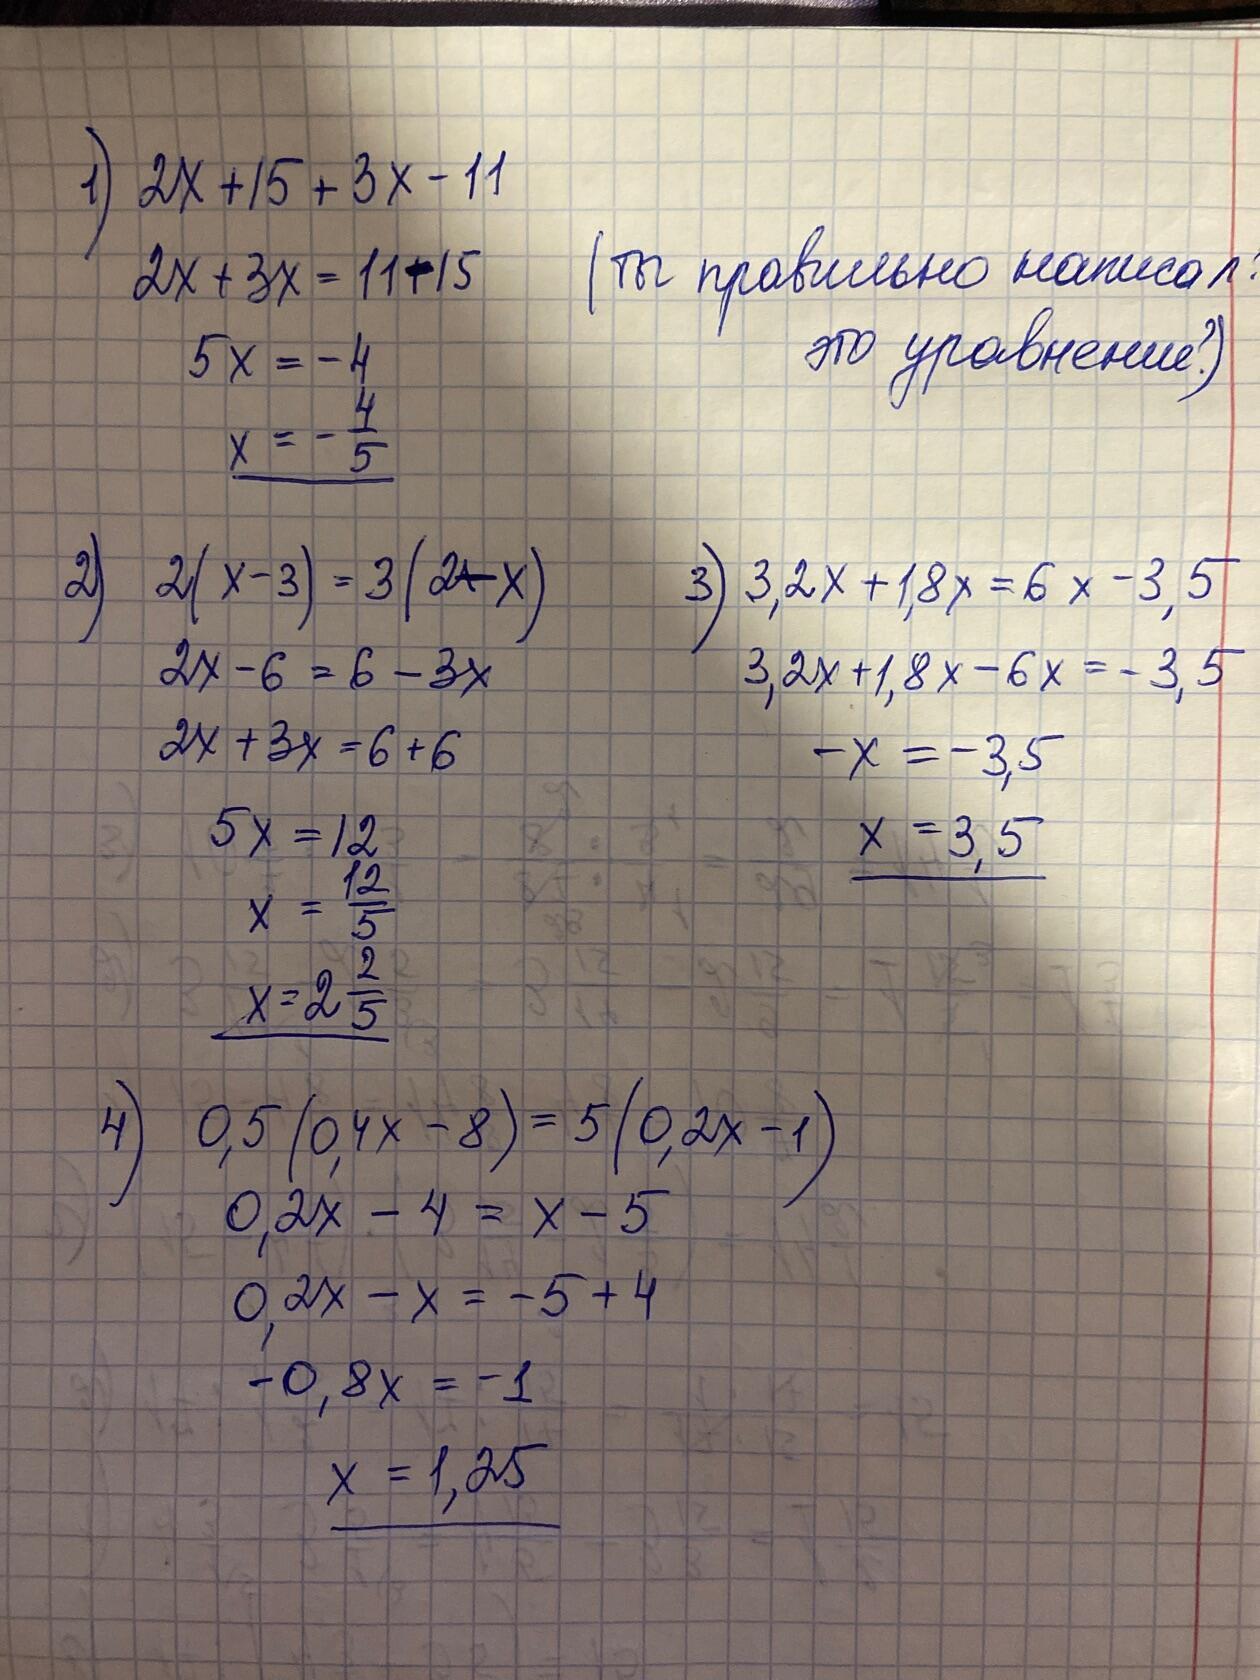 1) 2x+15+3x-11
2x+3x=11-15
(ты правильно написал:
это уравнение?)
5x=-4
x=-4/5
2) 2(x-3)=3(2-x)
2x-6=6-3x
2x+3x=6+6
5x=12
x=12/5
x=2 2/5
3) 3,2x+1,8x=6x-3,5
3,2x+1,8x-6x=-3,5
-x=-3,5
x=3,5
4) 0,5(0,4x-8)=5(0,2x-1)
0,2x-4=x-5
0,2x-x=-5+4
-0,8x=-1
x=1,25